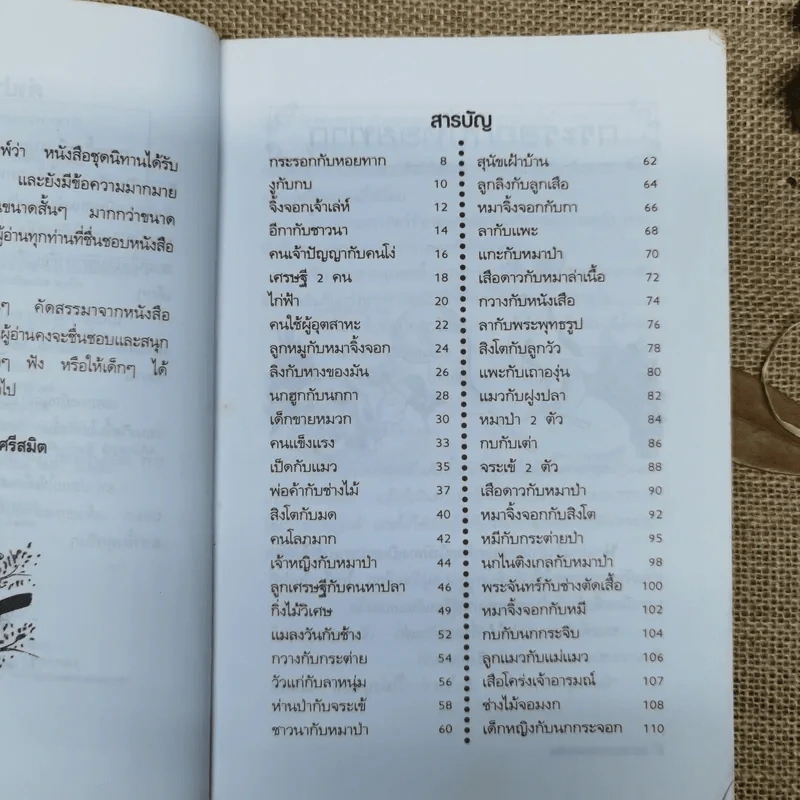 พ์ว่า หนังสือชุดนิทานได้รับ
และยังมีข้อความมากมาย
นขนาดสั้นๆ มากกว่าขนาด
ผู้อ่านทุกท่านที่ชื่นชอบหนังสือ
ๆ คัดสรรมาจากหนังสือ
ผู้อ่านคงจะชื่นชอบและสนุก
ๆ ฟัง หรือให้เด็กๆ ได้
ไป
ศรีสมิต
สารบัญ
กระรอกกับหอยทาก 8
งูกับกบ 10
จิ้งจอกเจ้าเล่ห์ 12
อีกากับชาวนา 14
คนเจ้าปัญญากับคนโง่ 16
เศรษฐี 2 คน 18
ไก่ฟ้า 20
คนใช้ผู้อุตสาหะ 22
ลูกหมูกับหมาจิ้งจอก 24
ลิงกับหางของมัน 26
นกฮูกกับนกกา 28
เด็กขายหมวก 30
คนแข็งแรง 33
เป็ดกับแมว 35
พ่อค้ากับช่างไม้ 37
สิงโตกับมด 40
คนโลภมาก 42
เจ้าหญิงกับหมาป่า 44
ลูกเศรษฐีกับคนหาปลา 46
กิ่งไม้วิเศษ 49
แมลงวันกับช้าง 52
กวางกับกระต่าย 54
วัวแก่กับลาหนุ่ม 56
ห่านป่ากับจระเข้ 58
ชาวนากับหมาป่า 60
สุนัขเฝ้าบ้าน 62
ลูกลิงกับลูกเสือ 64
หมาจิ้งจอกกับกา 66
ลากับแพะ 68
แกะกับหมาป่า 70
เสือดาวกับหมาล่าเนื้อ 72
กวางกับหนังเสือ 74
ลากับพระพุทธรูป 76
สิงโตกับลูกวัว 78
แพะกับเถาองุ่น 80
แมวกับฝูงปลา 82
หมาป่า 2 ตัว 84
กบกับเต่า 86
จระเข้ 2 ตัว 88
เสือดาวกับหมาป่า 90
หมาจิ้งจอกกับสิงโต 92
หมีกับกระต่ายป่า 95
นกไนติงเกลกับหมาป่า 98
พระจันทร์กับช่างตัดเสื้อ 100
หมาจิ้งจอกกับหมี 102
กบกับนกกระจิบ 104
ลูกแมวกับแม่แมว 106
เสือโคร่งเจ้าอารมณ์ 107
ช่างไม้จอมงก 108
เด็กหญิงกับนกกระจอก 110